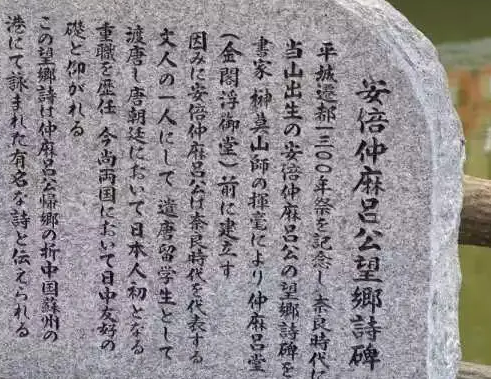 安倍仲麻呂公望郷詩碑
平城遷都一三〇〇年祭を記念し奈良時代に
当山出生の安倍仲麻呂公の望郷詩碑を
書家 榊莫山師の揮毫により仲麻呂堂
(金閣浮御堂)前に建立す
因みに安倍仲麻呂公は奈良時代を代表する
文人の一人にして 遣唐留学生として
渡唐し唐朝廷において日本人初となる
重職を歴任 今尚両国において日中友好の
礎と仰がれる
この望郷詩は仲麻呂公帰郷の折中国蘇州の
港にて詠まれた有名な詩と伝えられる